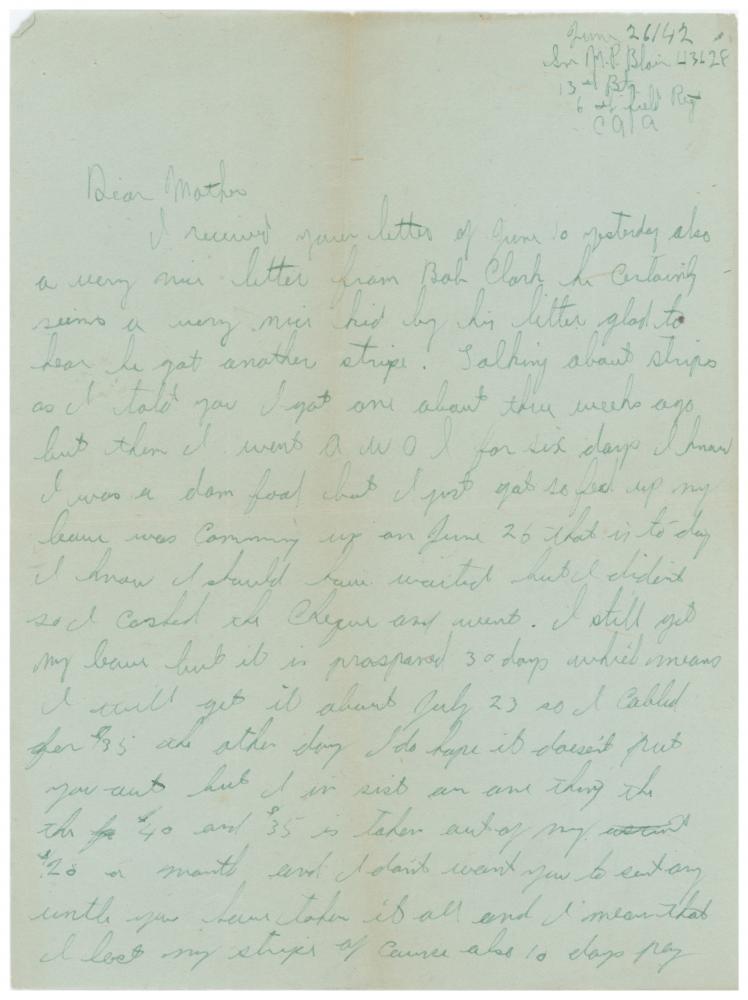 June 26/42
Gnr M.P. Blair U3628
13th Bty
6th field Reg
C A A
Dear Mother
I received your letter of June 10 yesterday also
a very nice letter from Bob Clark he certainly
seems a very nice kid by his letter glad to
hear he got another stripe. Talking about strips
as I told you I got one about three weeks ago
but then I went A W O L for six days I know
I was a dam fool but I just got so fed up my
leave was comming up on June 26 that is to day
I know I should have waited but I dident
so I cashed the Cheque and went. I still get
my leave but it is prosponed 30 days which means
I will get it about July 23 so I Cabled
for $35 the other day I do hope it doesent put
you out but I in sist on one thing the
the $40 and $35 is taken out of my
$20 a month and I dont want you to sent any
untle you have taken it all and I mean that
I lost my stripe of course also 10 days pay